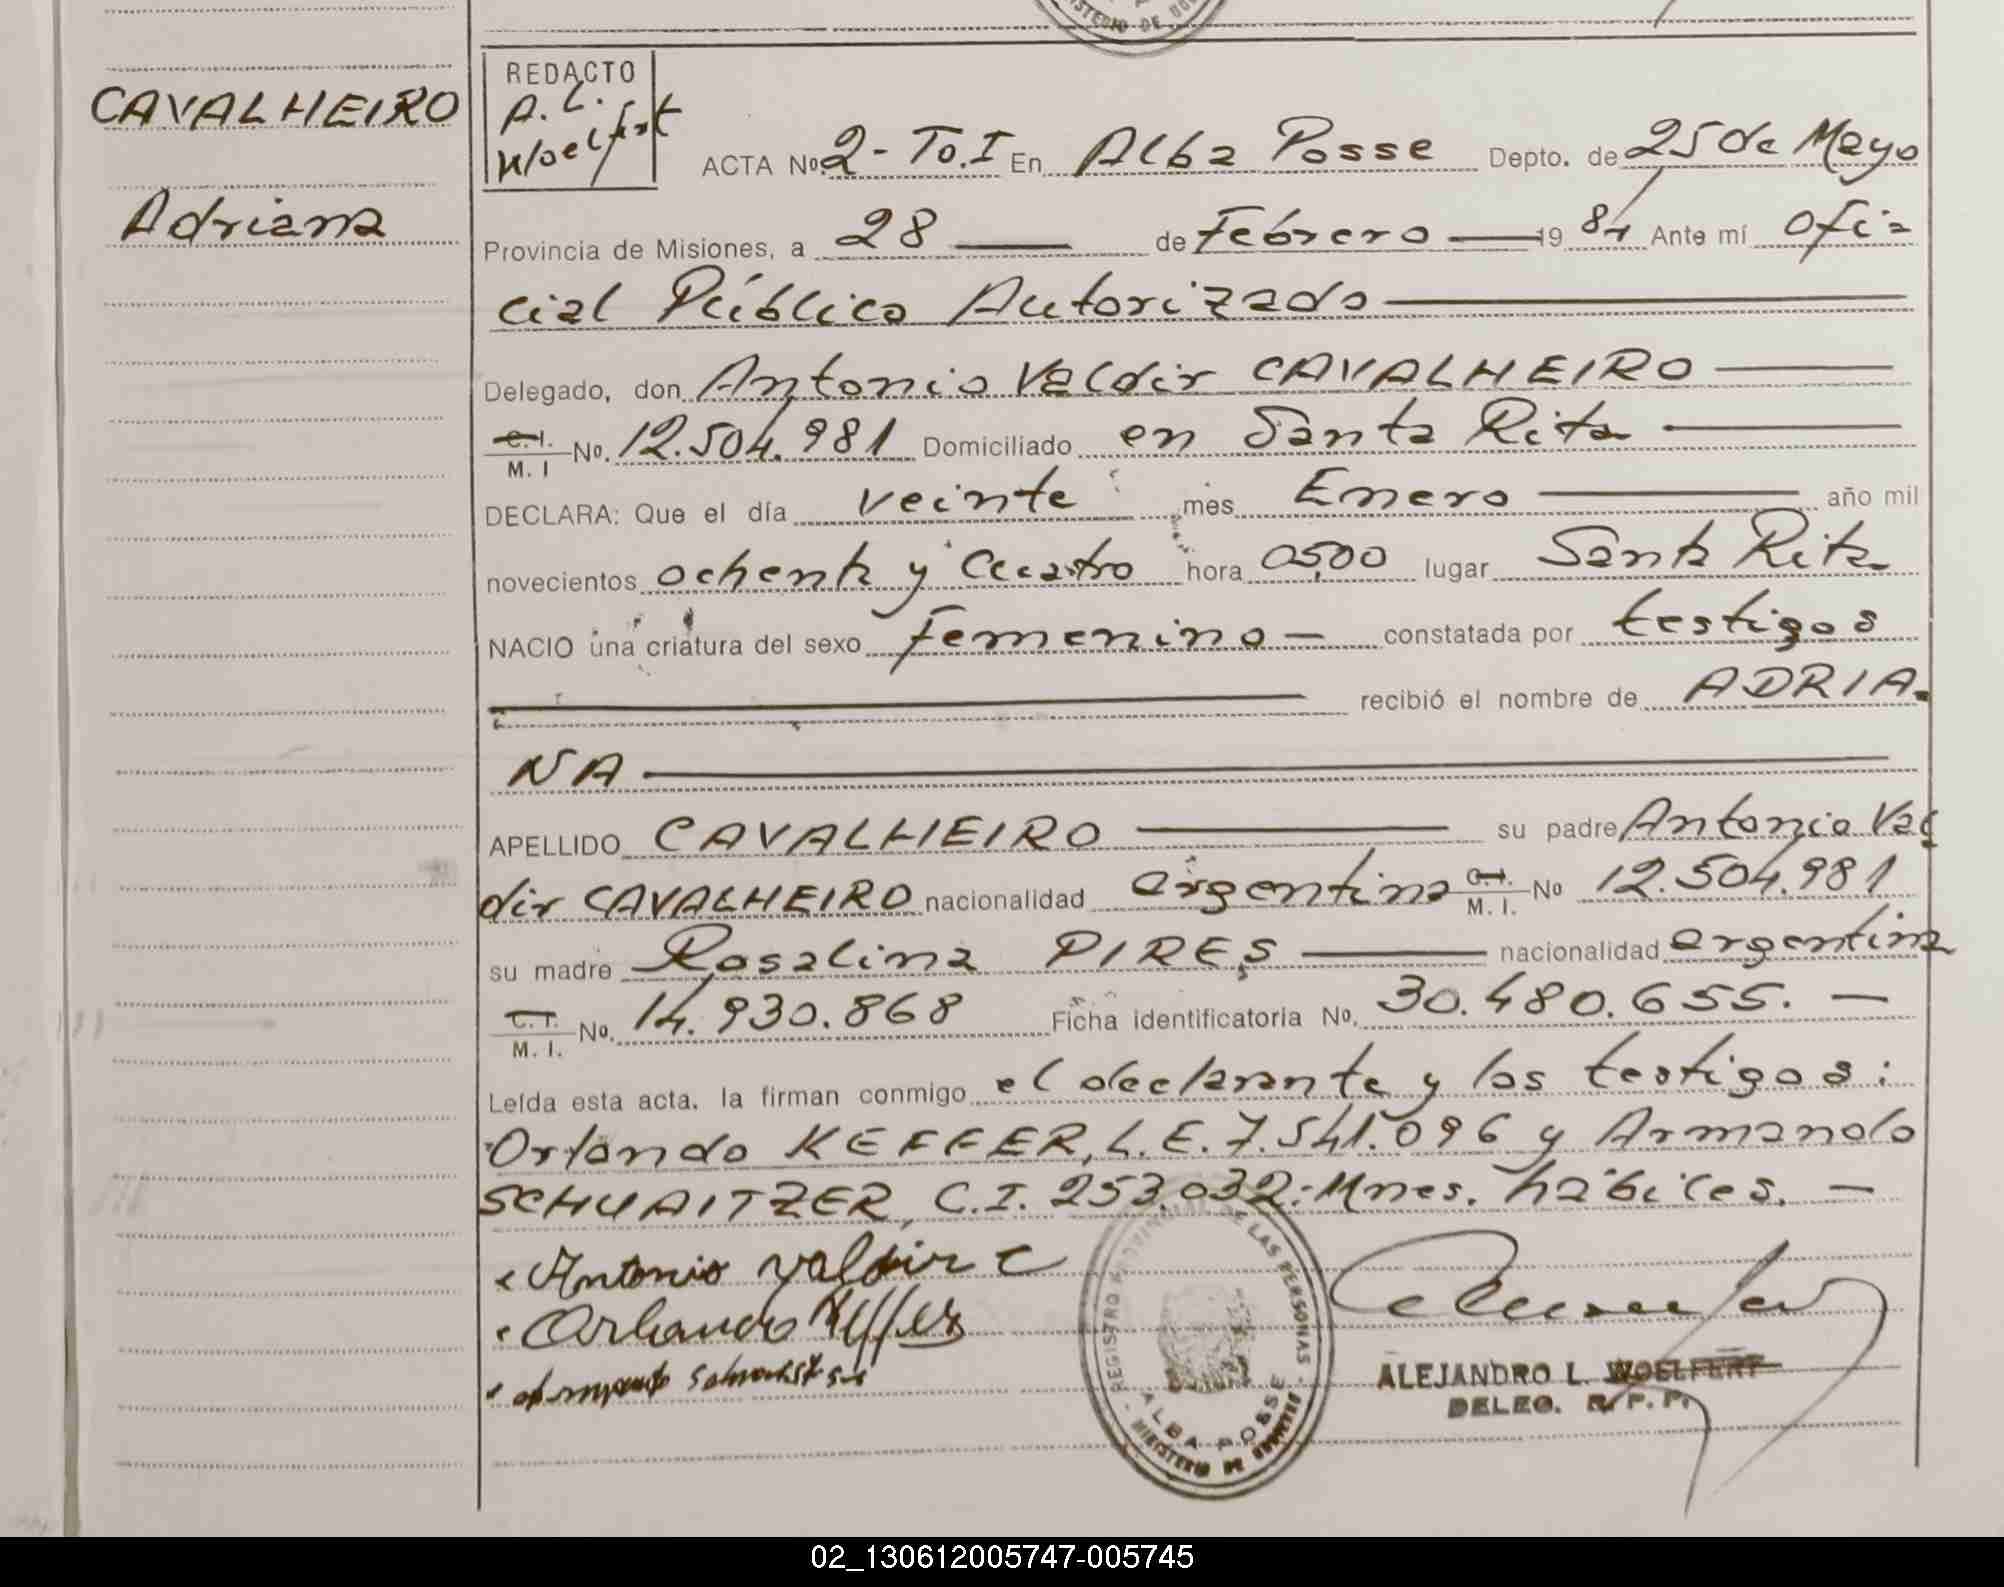 MINISTERIO DE GOB
CAVALHEIRO
Adriana
REDACTO
A. L.
Woelfert
ACTA Nº 2 - To. I En Alba Posse Depto. de 25 de Mayo
Provincia de Misiones, a 28 de Febrero 1984 Ante mí Ofi=
cial Público Autorizado
Delegado, don Antonio Valdir CAVALHEIRO
C. I. / M. I Nº. 12.504.981 Domiciliado en Santa Rita
DECLARA: Que el día veinte mes Enero año mil
novecientos ochenta y cuatro hora 05,00 lugar Santa Rita
NACIO una criatura del sexo femenino - constatada por testigos
recibió el nombre de ADRIA-
NA
APELLIDO CAVALHEIRO su padre Antonio Val
dir CAVALHEIRO nacionalidad argentina C. I. / M. I. Nº 12.504.981
su madre Rosalina PIRES nacionalidad argentina
C. I. / M. I. Nº. 14.930.868 Ficha identificatoria Nº. 30.480.655. -
Leída esta acta, la firman conmigo el declarante y los testigos:
Orlando KEFFER, L.E. 7.541.096 y Armando
SCHUAITZER, C.I. 253.032.- Mnes. hábiles. -
Antonio Valdir C
Orlando Keffer
REGISTRO PROVINCIAL DE LAS PERSONAS
ALBA POSSE
MINISTERIO DE GOBIERNO
ALEJANDRO L. WOELFERT
DELEG. R. P. P.
02_130612005747-005745